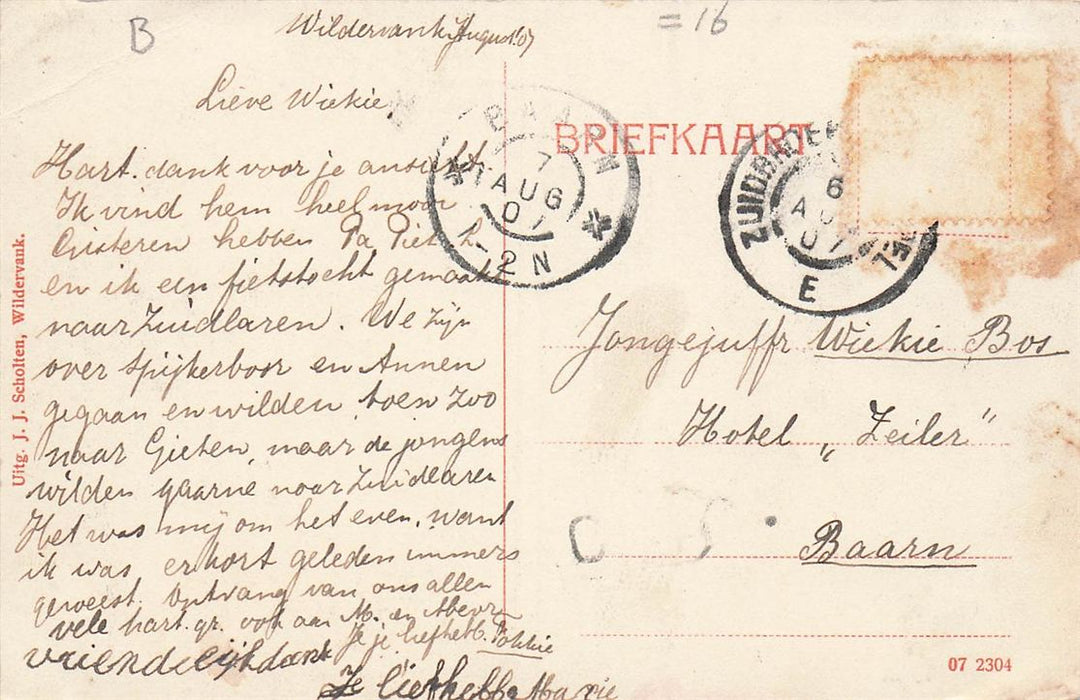 B
= 16
Wildervank, August. 07
Lieve Wiekie
Hart. dank voor je ansicht.
Ik vind hem heel mooi.
Gisteren hebben Pa, Piet, 
en ik een fietstocht gemaakt
naar Zuidlaren. We zijn
over Spijkerboor en Annen
gegaan en wilden toen zoo
naar Gieten, maar de jongens
wilden gaarne naar Zuidlaren
Het was mij om het even, want
ik was er kort geleden immers
geweest. Ontvang van ons allen
vele hart. gr. ook aan M. en
Je je liefhebb.
vriendelijk dank
Je liefhebbe Marie
BRIEFKAART
BAARN
7
AUG
07
1-2 N
ZUIDBROEK
6
AUG
07
E
Jongejuffr Wiekie Bos
Hotel „Zeiler"
Baarn
Uitg. J. J. Scholten, Wildervank.
07 2304